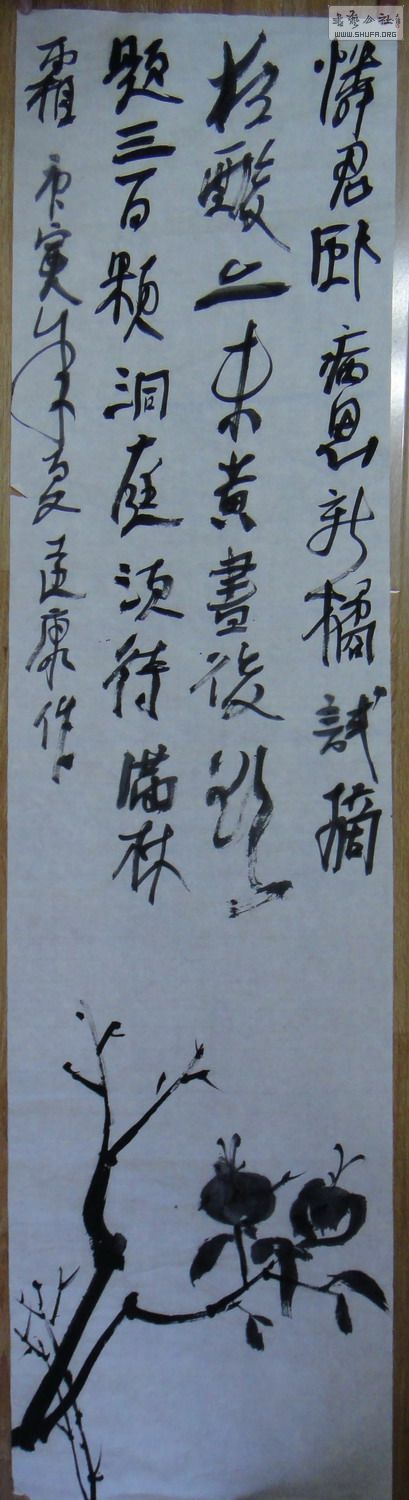 憐君卧病思新橘試摘
猶酸亦未黄書後欲
題三百顆洞庭須待滿林
霜 庚寅年夏 康作
書藝公社
WWW.SHUFA.ORG